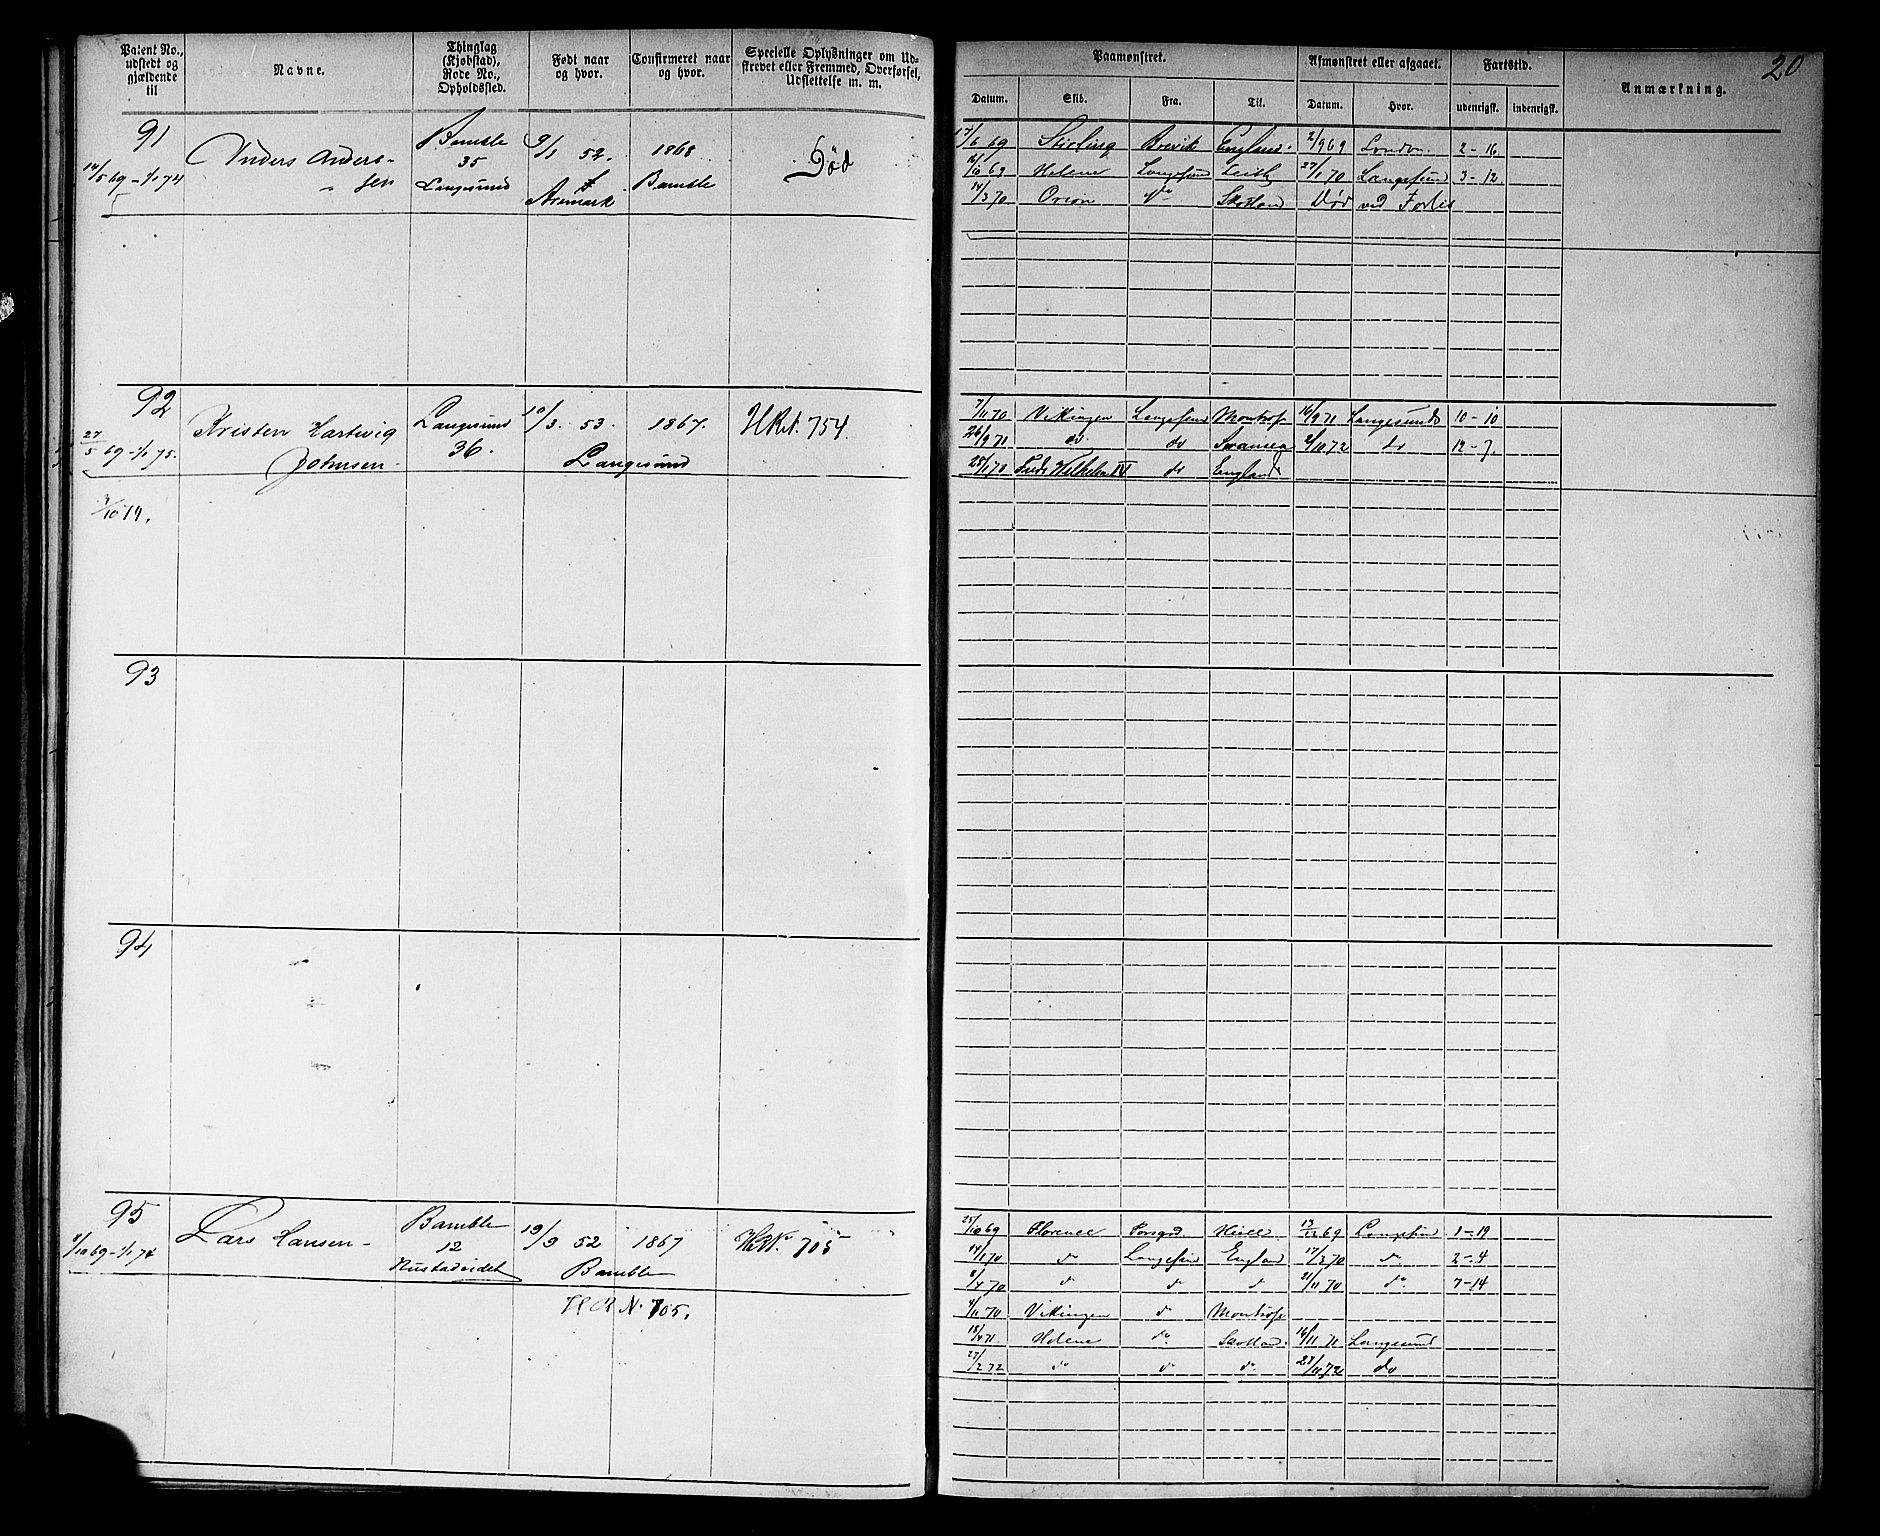 Patent No., udstedt og gjældende til
Navne.
Thinglag (Kjøbstad), Rode No., Opholdssted.
Født naar og hvor.
Confirmeret naar og hvor.
Specielle Oplysninger om Udskrevet eller Fremmed, Overførsel, Udslettelse m. m.
Paamønstret.
Afmønstret eller afgaaet.
Fartstid.
Anmærkning.
20
Datum.
Skib.
Fra.
Til.
Datum.
Hvor.
udenrigsk.
indenrigsk.
91
14/5 69 - 1/1 74
Anders Anders-
sen
Bamble
35
Langesund
9/1 52.
Aremark
1868
Bamble
Død
17/6 69 Stirling Brevik England 2/9 69 London 2-16
16/10 69 Helene Langesund Leith 27/1 70 Langesund 3-12
14/3 70 Orion do Skotland Død ved
92
27/5 69 - 1/1 75.
3/10 19.
Kristen Hartwig
Johnsen
Langesund
36.
10/3. 53.
Langesund
1867.
HRN. 754.
7/11 70 Vikingen Langesund Montrose 16/9 71 Langesund 10-10
26/9 71 do do Swansea 2/10 72 do 12-7.
Fredr Wilhelm IV do England
93
94
95
8/10 69 - 1/1 74
Lars Hansen
Bamble
12
Rustadeidet
19/9 52
Bamble
1867
HRN. 705
H R N. 705.
25/10 69 Florence Porsgd 13/12 69 Langesund 1-19
14/1 70 do Langesund England 17/3 70 do 2-4
8/4 70 do do do 21/11 70 do 7-14
4/11 70 Vikingen do Montrose
18/4 71. Helene do Skotland 16/11 71 Langesund
27/2 72 do do do 23/11 72 do